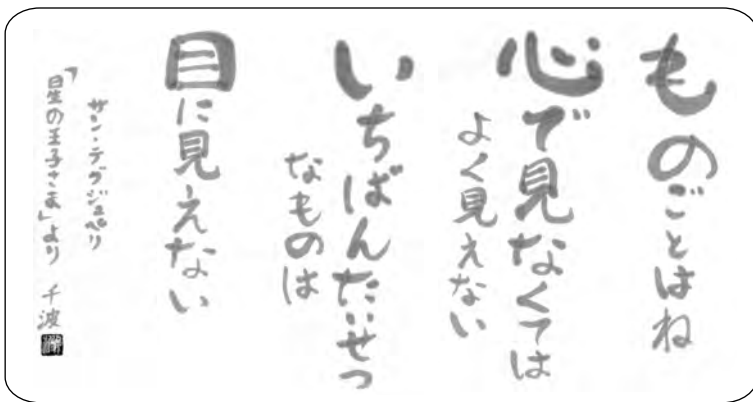 ものごとはね
心で見なくては
よく見えない
いちばんたいせつ
なものは
目に見えない
サン・テグジュペリ
「星の王子さま」より 千波